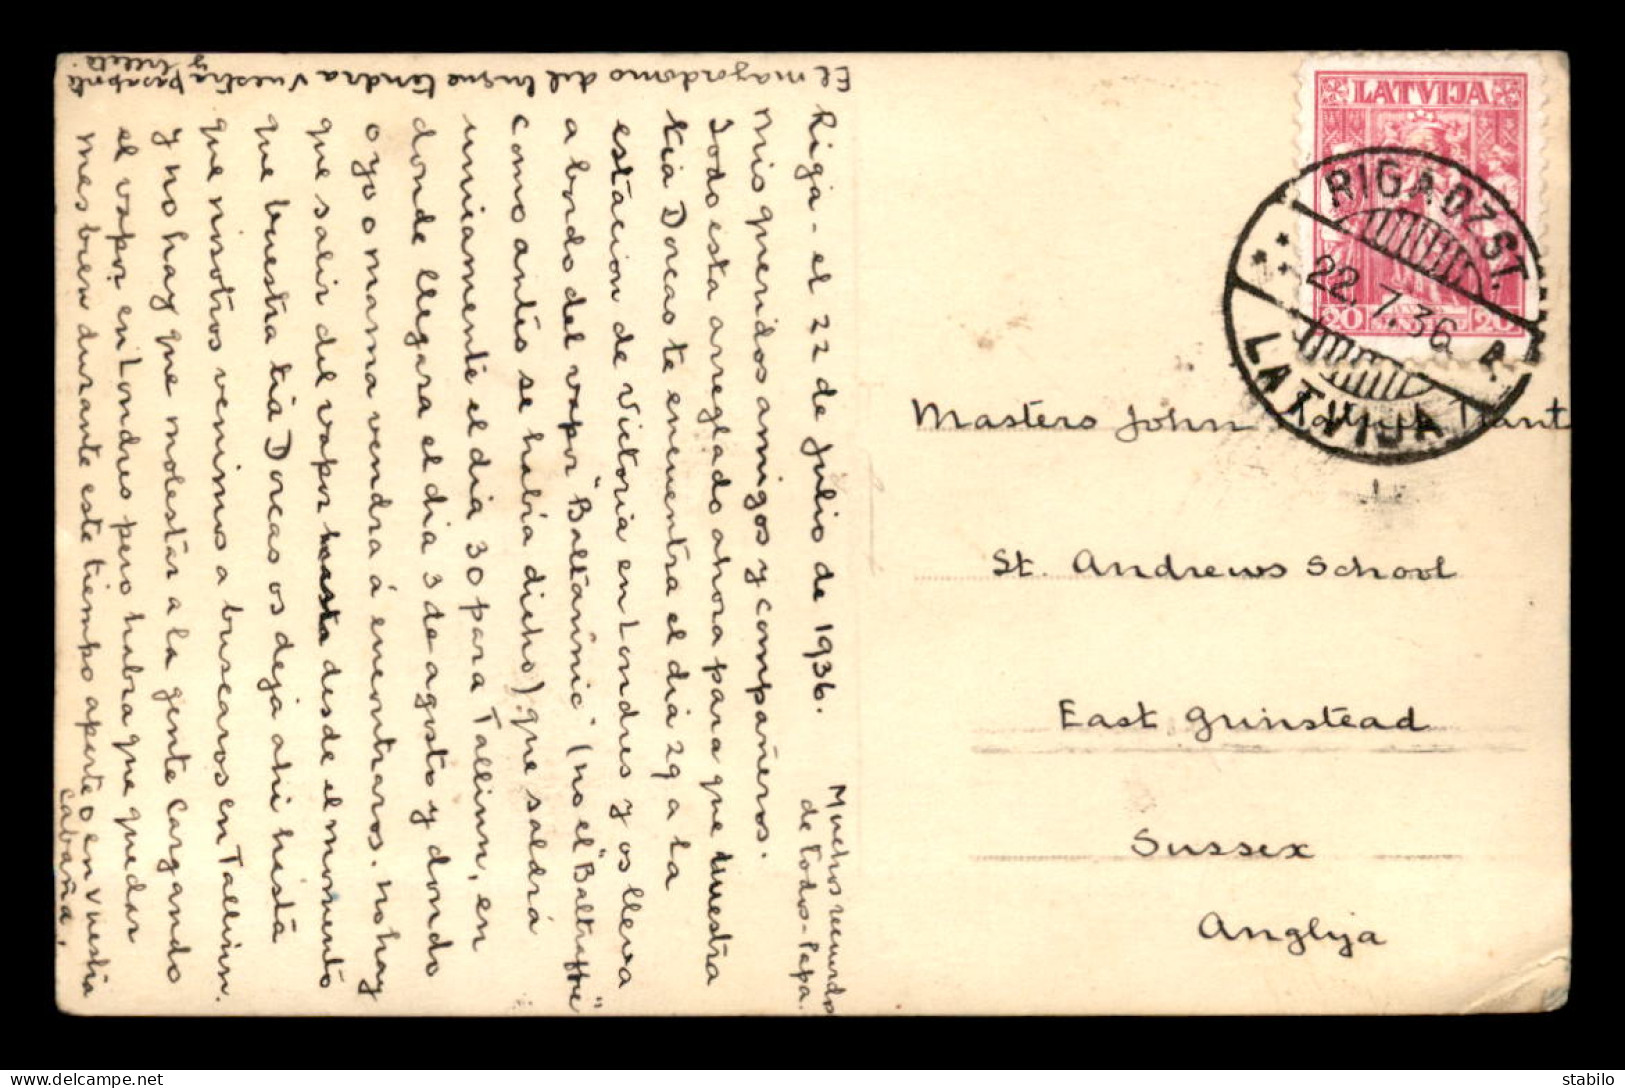 Riga - el 22 de julio de 1936.
Mis queridos amigos y compañeros.
Todo esta arreglado ahora para que vuestra
tia Dorcas te encuentra el dia 29 a la
estacion de Victoria en Londres y os lleva
a bordo del vapor "Baltannic" (no el "Baltraffie"
como antes se habia dicho) que saldrá
unicamente el dia 30 para Tallinn, en
donde llegara el dia 3 de agosto y dondo
o yo o mama vendra á encontraros. no hay
que salir del vapor hasta desde el momento
que vuestra tia Dorcas os deja ahi hasta
que nosotros venimos a buscaros en Tallinn.
y no hay que molestar a la gente cargando
el vapor en Londres pero habra que quedar
mes bien durante este tiempo aparte o en vuestra
cabaña.
El magordomo del buque tendra vuestra pasaporte
y billets.
Muchos recuerdo
de todos - Papa.
LATVIJA
20 20
RIGA DZ. ST.
22. 7. 36 A.
LATVIJA
Masters John
St. Andrews School
East Grinstead
Sussex
Anglija
stabilo